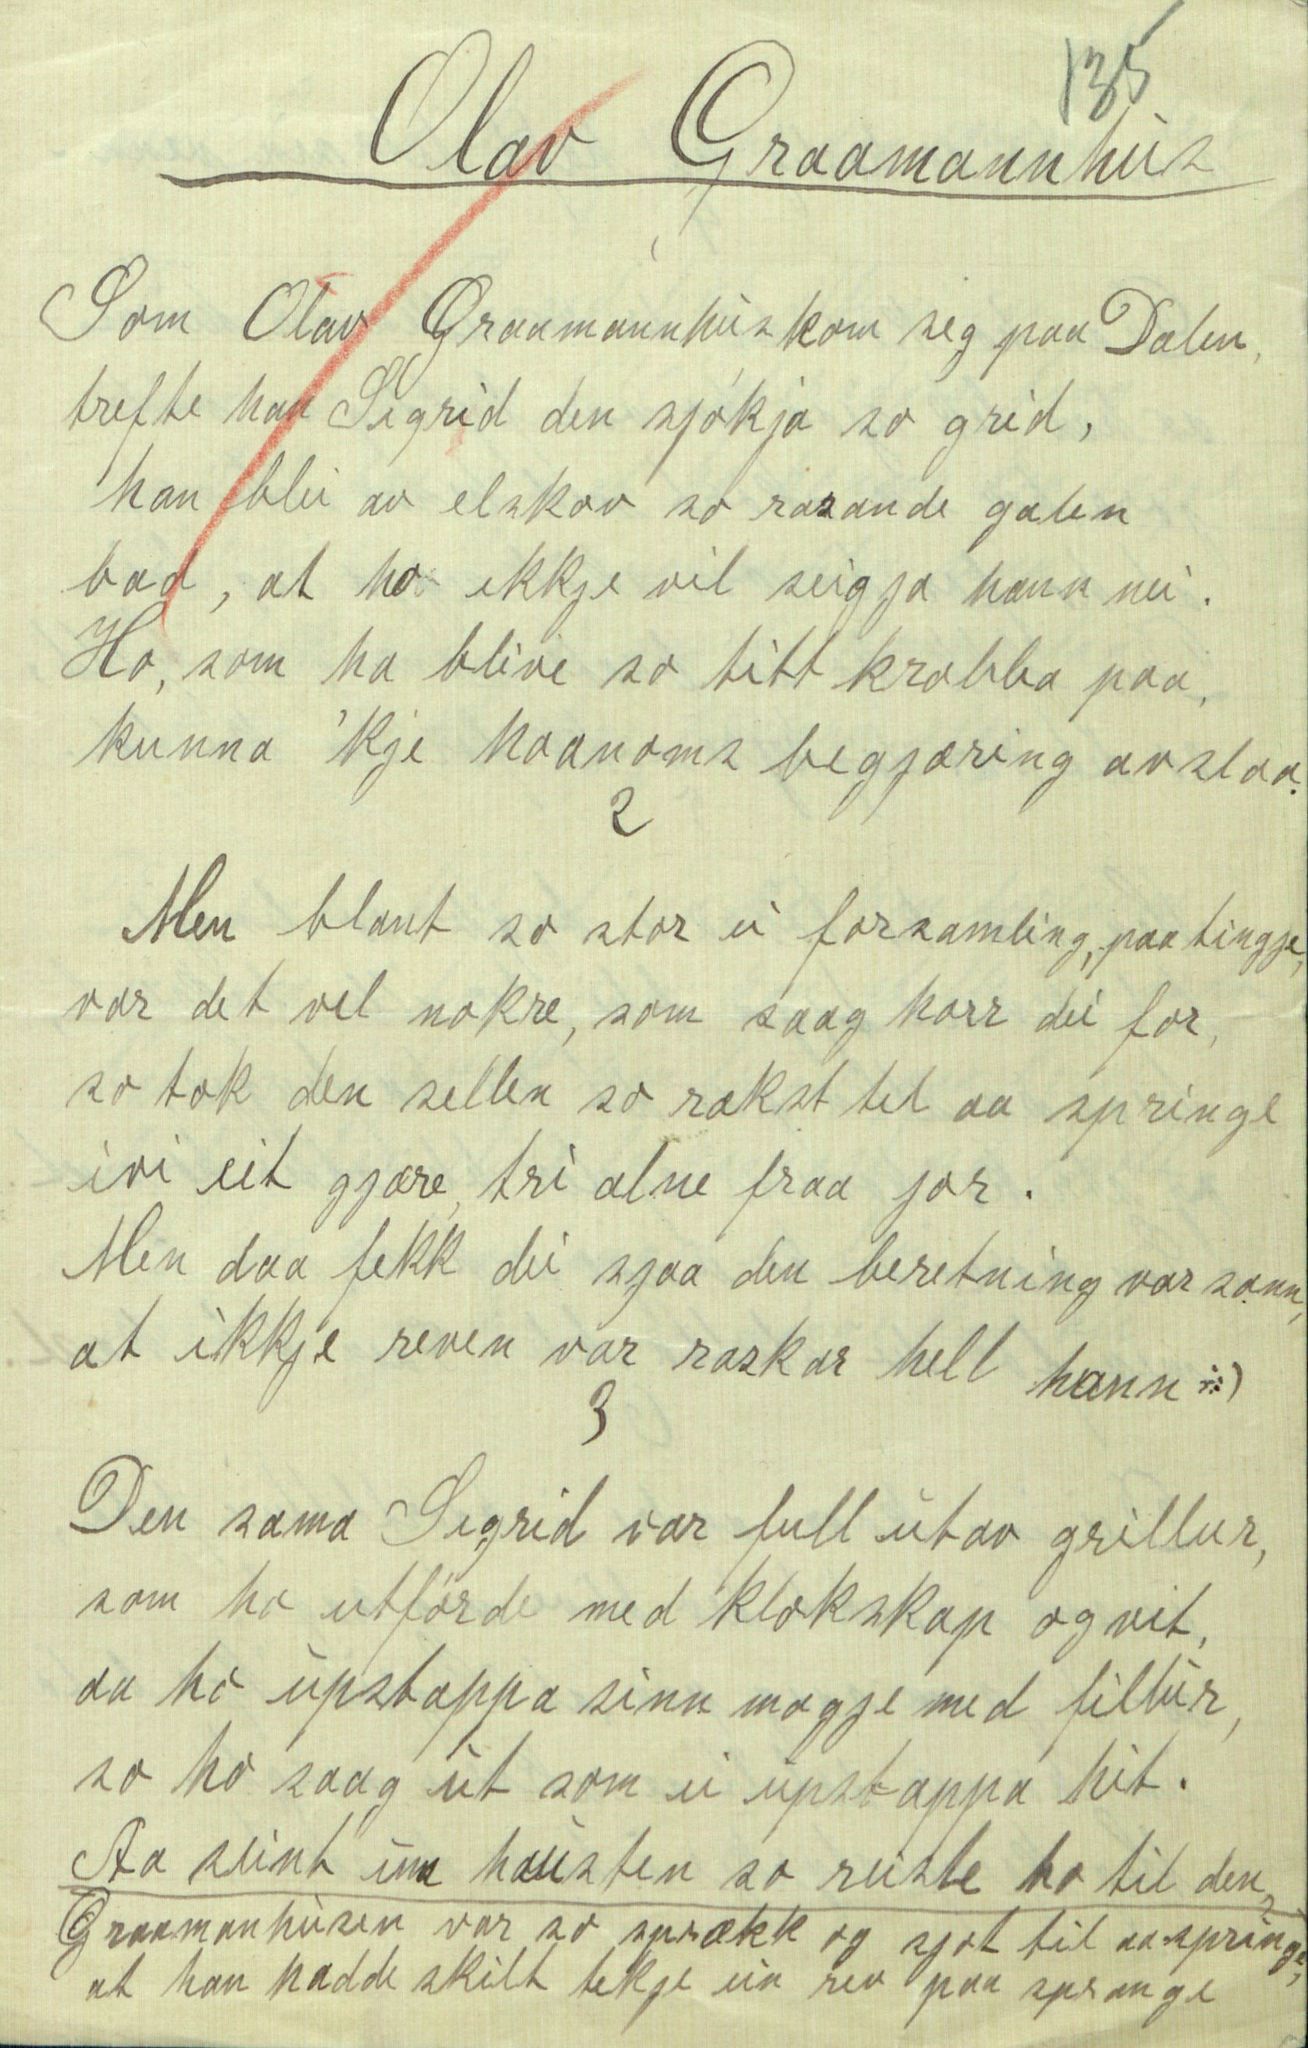 135
Olav Graamannhus
Som Olav Graamannhus kom seg paa Dalen,
trefte han Sigrid den sjókja so grid,
han blei av elskov so rasande galen
bad, at ho ikkje vil seigja hann nei.
Ho, som ha blive so titt krabba paa,
kunna 'kje haanoms begjæring avslaa.
2
Men blant so stor ei forsamling, paa tingje,
var det vel nokre, som saag korr dei for,
so tok den sellen so rakst tel aa springe
ivi eit gjære, tri alne fraa jor.
Men daa fekk dei sjaa den beretning var sann,
at ikkje reven var raskar hell hann ⁒)
3
Den sama Sigrid var full utav grillur,
som ho utförde med klokskap og vit,
aa ho upstappa sinn magje med fillur,
so ho saag ut som ei upstappa hit.
Aa seint um hausten so reiste ho til den,
Graamanhusen var so sprækk og sjot til aa springe,
at han hadde skilt tekje ein rev paa sprange